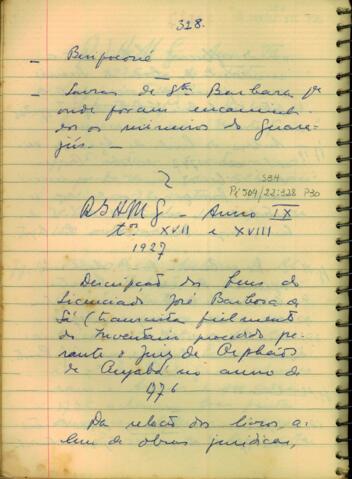 328.
-
- Lavras de Sta Barbara pa
onde foram encaminha
dos os mineiros do Guara-
jús. -
2
534
Pi 304/22:328 P30
RSHMG - Anno IX
tos XVII e XVIII
1927
Descripção dos bens do
Licenciado José Barbosa de
Sá (transcrita fielmente
do Inventario procedido pe-
rante o Juiz de Orphãos
de Cuyabá no anno de
1776
Da relação dos livros, a-
lem de obras juridicas,